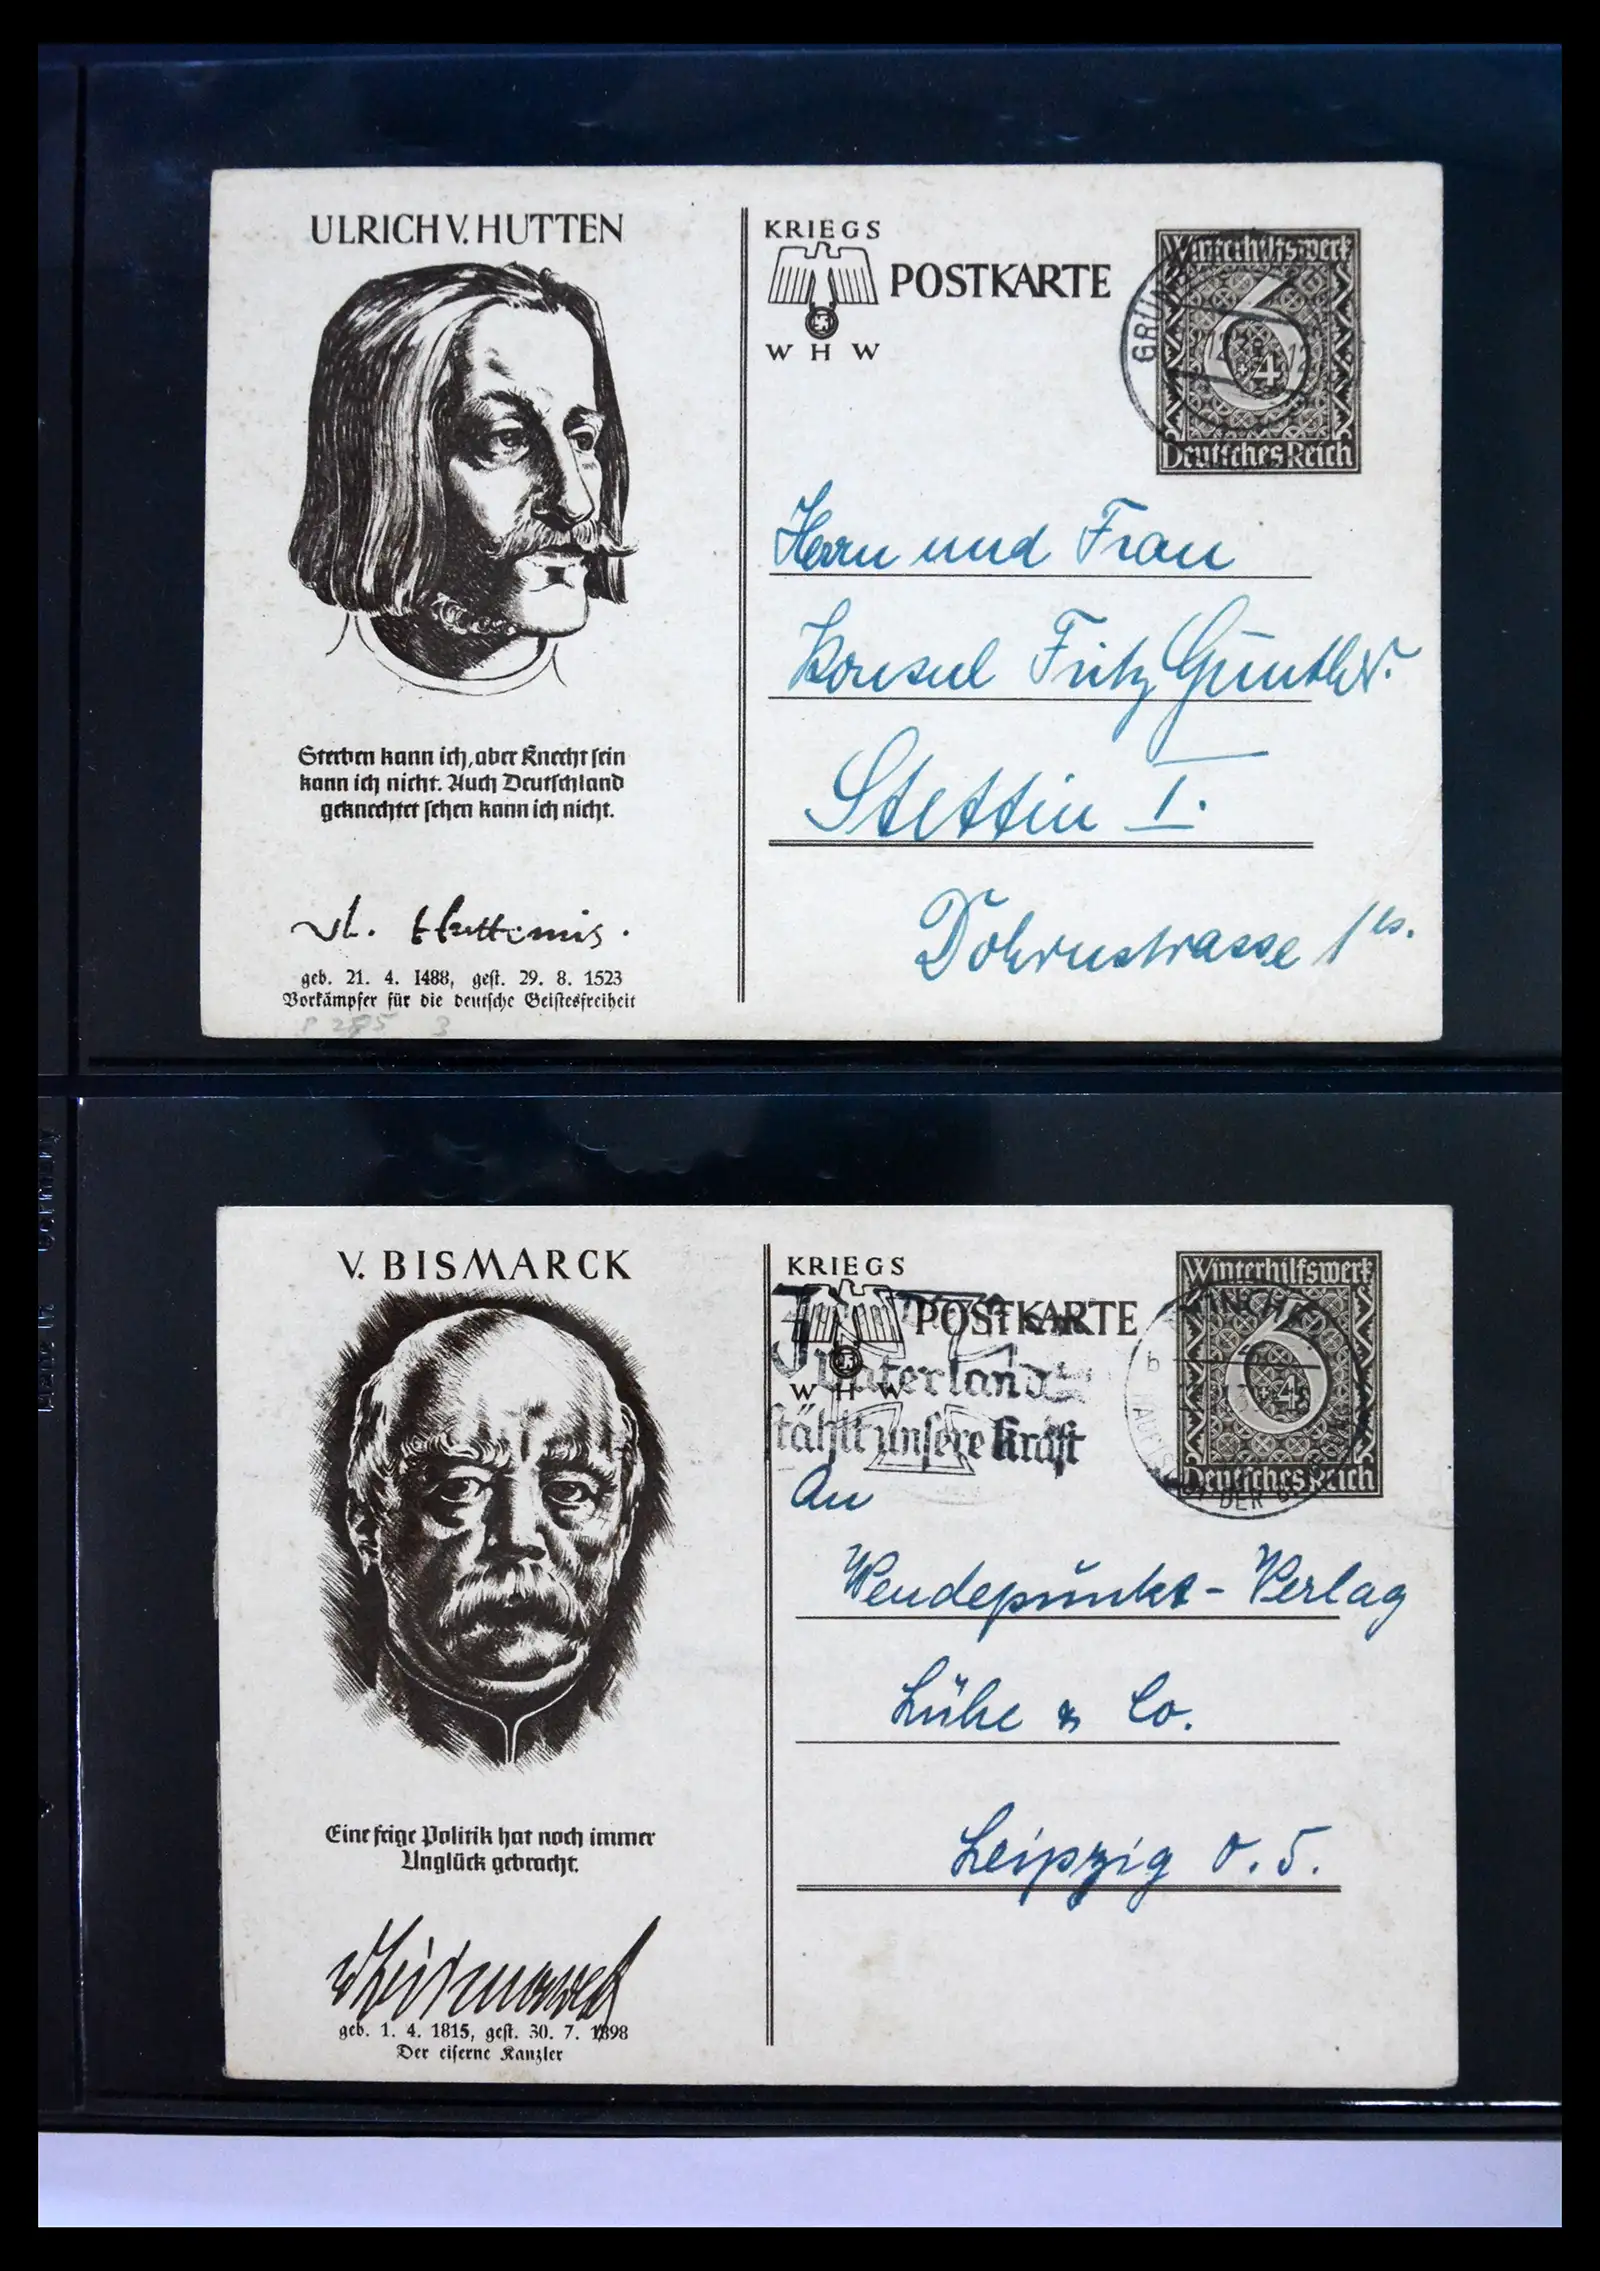 ULRICH V. HUTTEN
Sterben kann ich, aber Knecht sein
kann ich nicht. Auch Deutschland
geknechtet sehen kann ich nicht.
geb. 21. 4. 1488, gest. 29. 8. 1523
Vorkämpfer für die deutsche Geistesfreiheit
P 285 3
KRIEGS
POSTKARTE
W H W
Winterhilfswerk
6
+4
Deutsches Reich
Herrn und Frau
Konsul Fritz Günther.
Stettin I.
Dohrnstrasse
V. BISMARCK
Eine feige Politik hat noch immer
Unglück gebracht.
v Bismarck
geb. 1. 4. 1815, gest. 30. 7. 1898
Der eiserne Kanzler
KRIEGS
POSTKARTE
W H W
Vaterland
stählt unsere Kraft
Winterhilfswerk
6
+4
Deutsches Reich
MÜNCHEN
b
HAUPTSTADT DER BEWEGUNG
An
Wendepunkt-Verlag
Lühe & Co.
Leipzig O. 5.